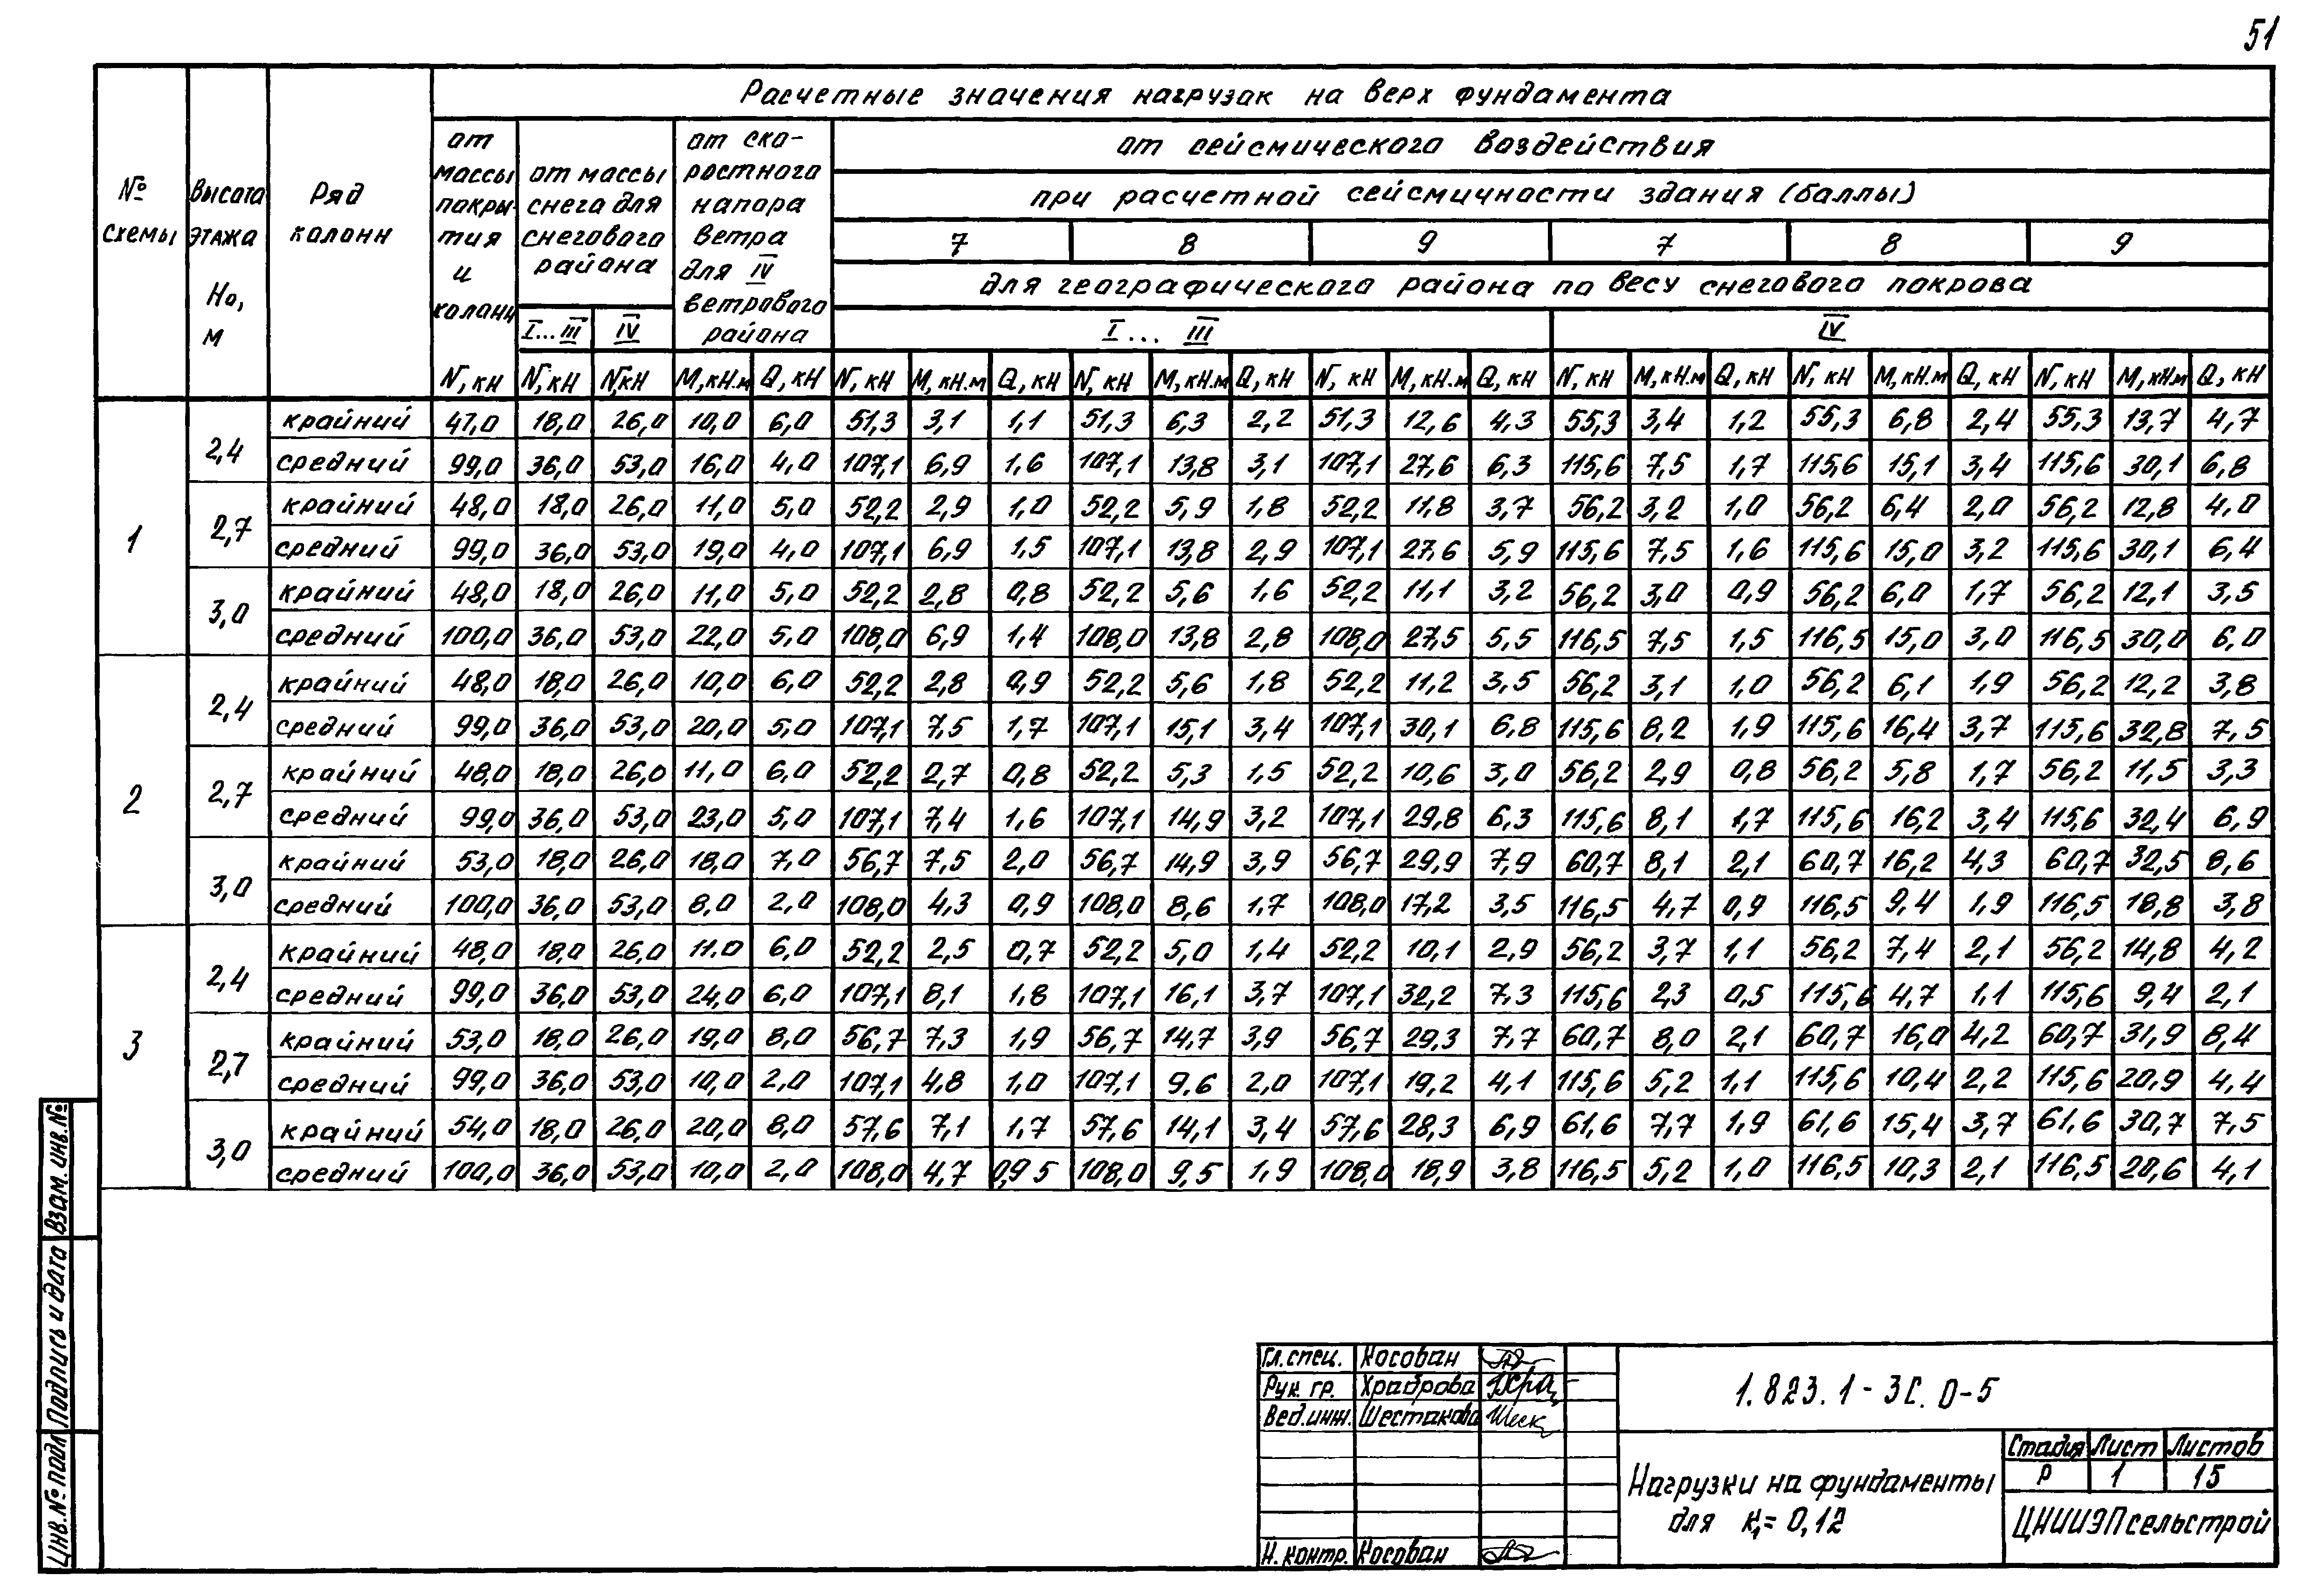 51
Расчетные значения нагрузок на верх фундамента
№ схемы
Высота этажа Но, м
Ряд колонн
от массы покрытия и колонн
от массы снега для снегового района
от скоростного напора ветра для IV ветрового района
от сейсмического воздействия
при расчетной сейсмичности здания (баллы)
7 8 9 7 8 9
для географического района по весу снегового покрова
I...III IV I... III IV
N, кН N, кН N,кН M,кН.м Q, кН N, кН M, кН.м Q, кН N, кН M, кН.м Q, кН N, кН M, кН.м Q, кН N, кН M, кН.м Q, кН N, кН M, кН.м Q, кН N, кН M, кН.м Q, кН
1 2,4 крайний 47,0 18,0 26,0 10,0 6,0 51,3 3,1 1,1 51,3 6,3 2,2 51,3 12,6 4,3 55,3 3,4 1,2 55,3 6,8 2,4 55,3 13,7 4,7
средний 99,0 36,0 53,0 16,0 4,0 107,1 6,9 1,6 107,1 13,8 3,1 107,1 27,6 6,3 115,6 7,5 1,7 115,6 15,1 3,4 115,6 30,1 6,8
2,7 крайний 48,0 18,0 26,0 11,0 5,0 52,2 2,9 1,0 52,2 5,9 1,8 52,2 11,8 3,7 56,2 3,2 1,0 56,2 6,4 2,0 56,2 12,8 4,0
средний 99,0 36,0 53,0 19,0 4,0 107,1 6,9 1,5 107,1 13,8 2,9 107,1 27,6 5,9 115,6 7,5 1,6 115,6 15,0 3,2 115,6 30,1 6,4
3,0 крайний 48,0 18,0 26,0 11,0 5,0 52,2 2,8 0,8 52,2 5,6 1,6 52,2 11,1 3,2 56,2 3,0 0,9 56,2 6,0 1,7 56,2 12,1 3,5
средний 100,0 36,0 53,0 22,0 5,0 108,0 6,9 1,4 108,0 13,8 2,8 108,0 27,5 5,5 116,5 7,5 1,5 116,5 15,0 3,0 116,5 30,0 6,0
2 2,4 крайний 48,0 18,0 26,0 10,0 6,0 52,2 2,8 0,9 52,2 5,6 1,8 52,2 11,2 3,5 56,2 3,1 1,0 56,2 6,1 1,9 56,2 12,2 3,8
средний 99,0 36,0 53,0 20,0 5,0 107,1 7,5 1,7 107,1 15,1 3,4 107,1 30,1 6,8 115,6 8,2 1,9 115,6 16,4 3,7 115,6 32,8 7,5
2,7 крайний 48,0 18,0 26,0 11,0 6,0 52,2 2,7 0,8 52,2 5,3 1,5 52,2 10,6 3,0 56,2 2,9 0,8 56,2 5,8 1,7 56,2 11,5 3,3
средний 99,0 36,0 53,0 23,0 5,0 107,1 7,4 1,6 107,1 14,9 3,2 107,1 29,8 6,3 115,6 8,1 1,7 115,6 16,2 3,4 115,6 32,4 6,9
3,0 крайний 53,0 18,0 26,0 18,0 7,0 56,7 7,5 2,0 56,7 14,9 3,9 56,7 29,9 7,9 60,7 8,1 2,1 60,7 16,2 4,3 60,7 32,5 8,6
средний 100,0 36,0 53,0 8,0 2,0 108,0 4,3 0,9 108,0 8,6 1,7 108,0 17,2 3,5 116,5 4,7 0,9 116,5 9,4 1,9 116,5 18,8 3,8
3 2,4 крайний 48,0 18,0 26,0 11.0 6,0 52,2 2,5 0,7 52,2 5,0 1,4 52,2 10,1 2,9 56,2 3,7 1,1 56,2 7,4 2,1 56,2 14,8 4,2
средний 99,0 36,0 53,0 24,0 6,0 107,1 8,1 1,8 107,1 16,1 3,7 107,1 32,2 7,3 115,6 2,3 0,5 115,6 4,7 1,1 115,6 9,4 2,1
2,7 крайний 53,0 18,0 26,0 19,0 8,0 56,7 7,3 1,9 56,7 14,7 3,9 56,7 29,3 7,7 60,7 8,0 2,1 60,7 16,0 4,2 60,7 31,9 8,4
средний 99,0 36,0 53,0 10,0 2,0 107,1 4,8 1,0 107,1 9,6 2,0 107,1 19,2 4,1 115,6 5,2 1,1 115,6 10,4 2,2 115,6 20,9 4,4
3,0 крайний 54,0 18,0 26,0 20,0 8,0 57,6 7,1 1,7 57,6 14,1 3,4 57,6 28,3 6,9 61,6 7,7 1,9 61,6 15,4 3,7 61,6 30,7 7,5
средний 100,0 36,0 53,0 10,0 2,0 108,0 4,7 0,95 108,0 9,5 1,9 108,0 18,9 3,8 116,5 5,2 1,0 116,5 10,3 2,1 116,5 20,6 4,1
Инв.№ подл Подпись и дата Взам. инв.№
Гл.спец. Косован
Рук. гр. Храброва
Вед.инж. Шестакова
Н. контр. Косован
1.823.1-3С.0-5
Нагрузки на фундаменты
для к₁=0,12
Стадия Лист Листов
Р 1 15
ЦНИИЭПсельстрой